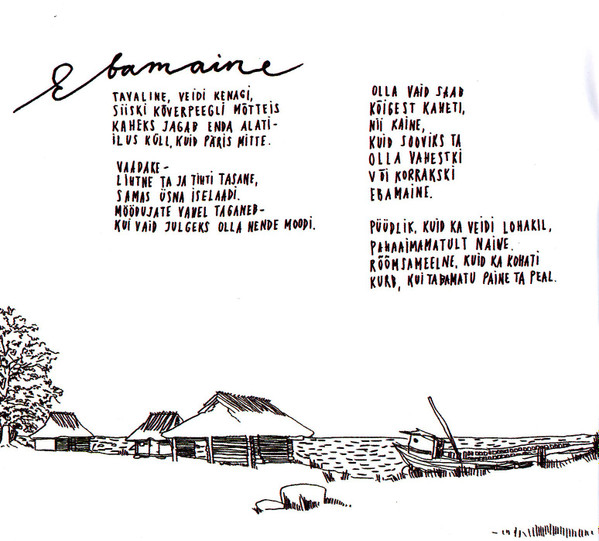 Ebamaine
TAVALINE, VEIDI KENAGI,
SIISKI KÕVERPEEGLI MÕTTEIS
KAHEKS JAGAB ENDA ALATI-
ILUS KÜLL, KUID PÄRIS MITTE.
VAADAKE-
LIHTNE TA JA TIHTI TASANE,
SAMAS ÜSNA ISELAADI.
MÖÖDUJATE VAHEL TAGANEB-
KUI VAID JULGEKS OLLA NENDE MOODI.
OLLA VAID SAAB
KÕIGEST KAHETI,
NII KAINE,
KUID SOOVIKS TA
OLLA VAHESTKI
VÕI KORRAKSKI
EBAMAINE.
PÜÜDLIK, KUID KA VEIDI LOHAKIL,
PAHAAIMAMATULT NAIIVNE.
RÕÕMSAMEELNE, KUID KA KOHATI
KURB, KUI TABAMATU PAINE TA PEAL.